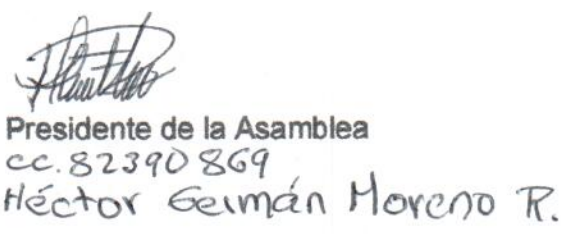 Presidente de la Asamblea
cc. 82390869
Héctor Germán Moreno R.